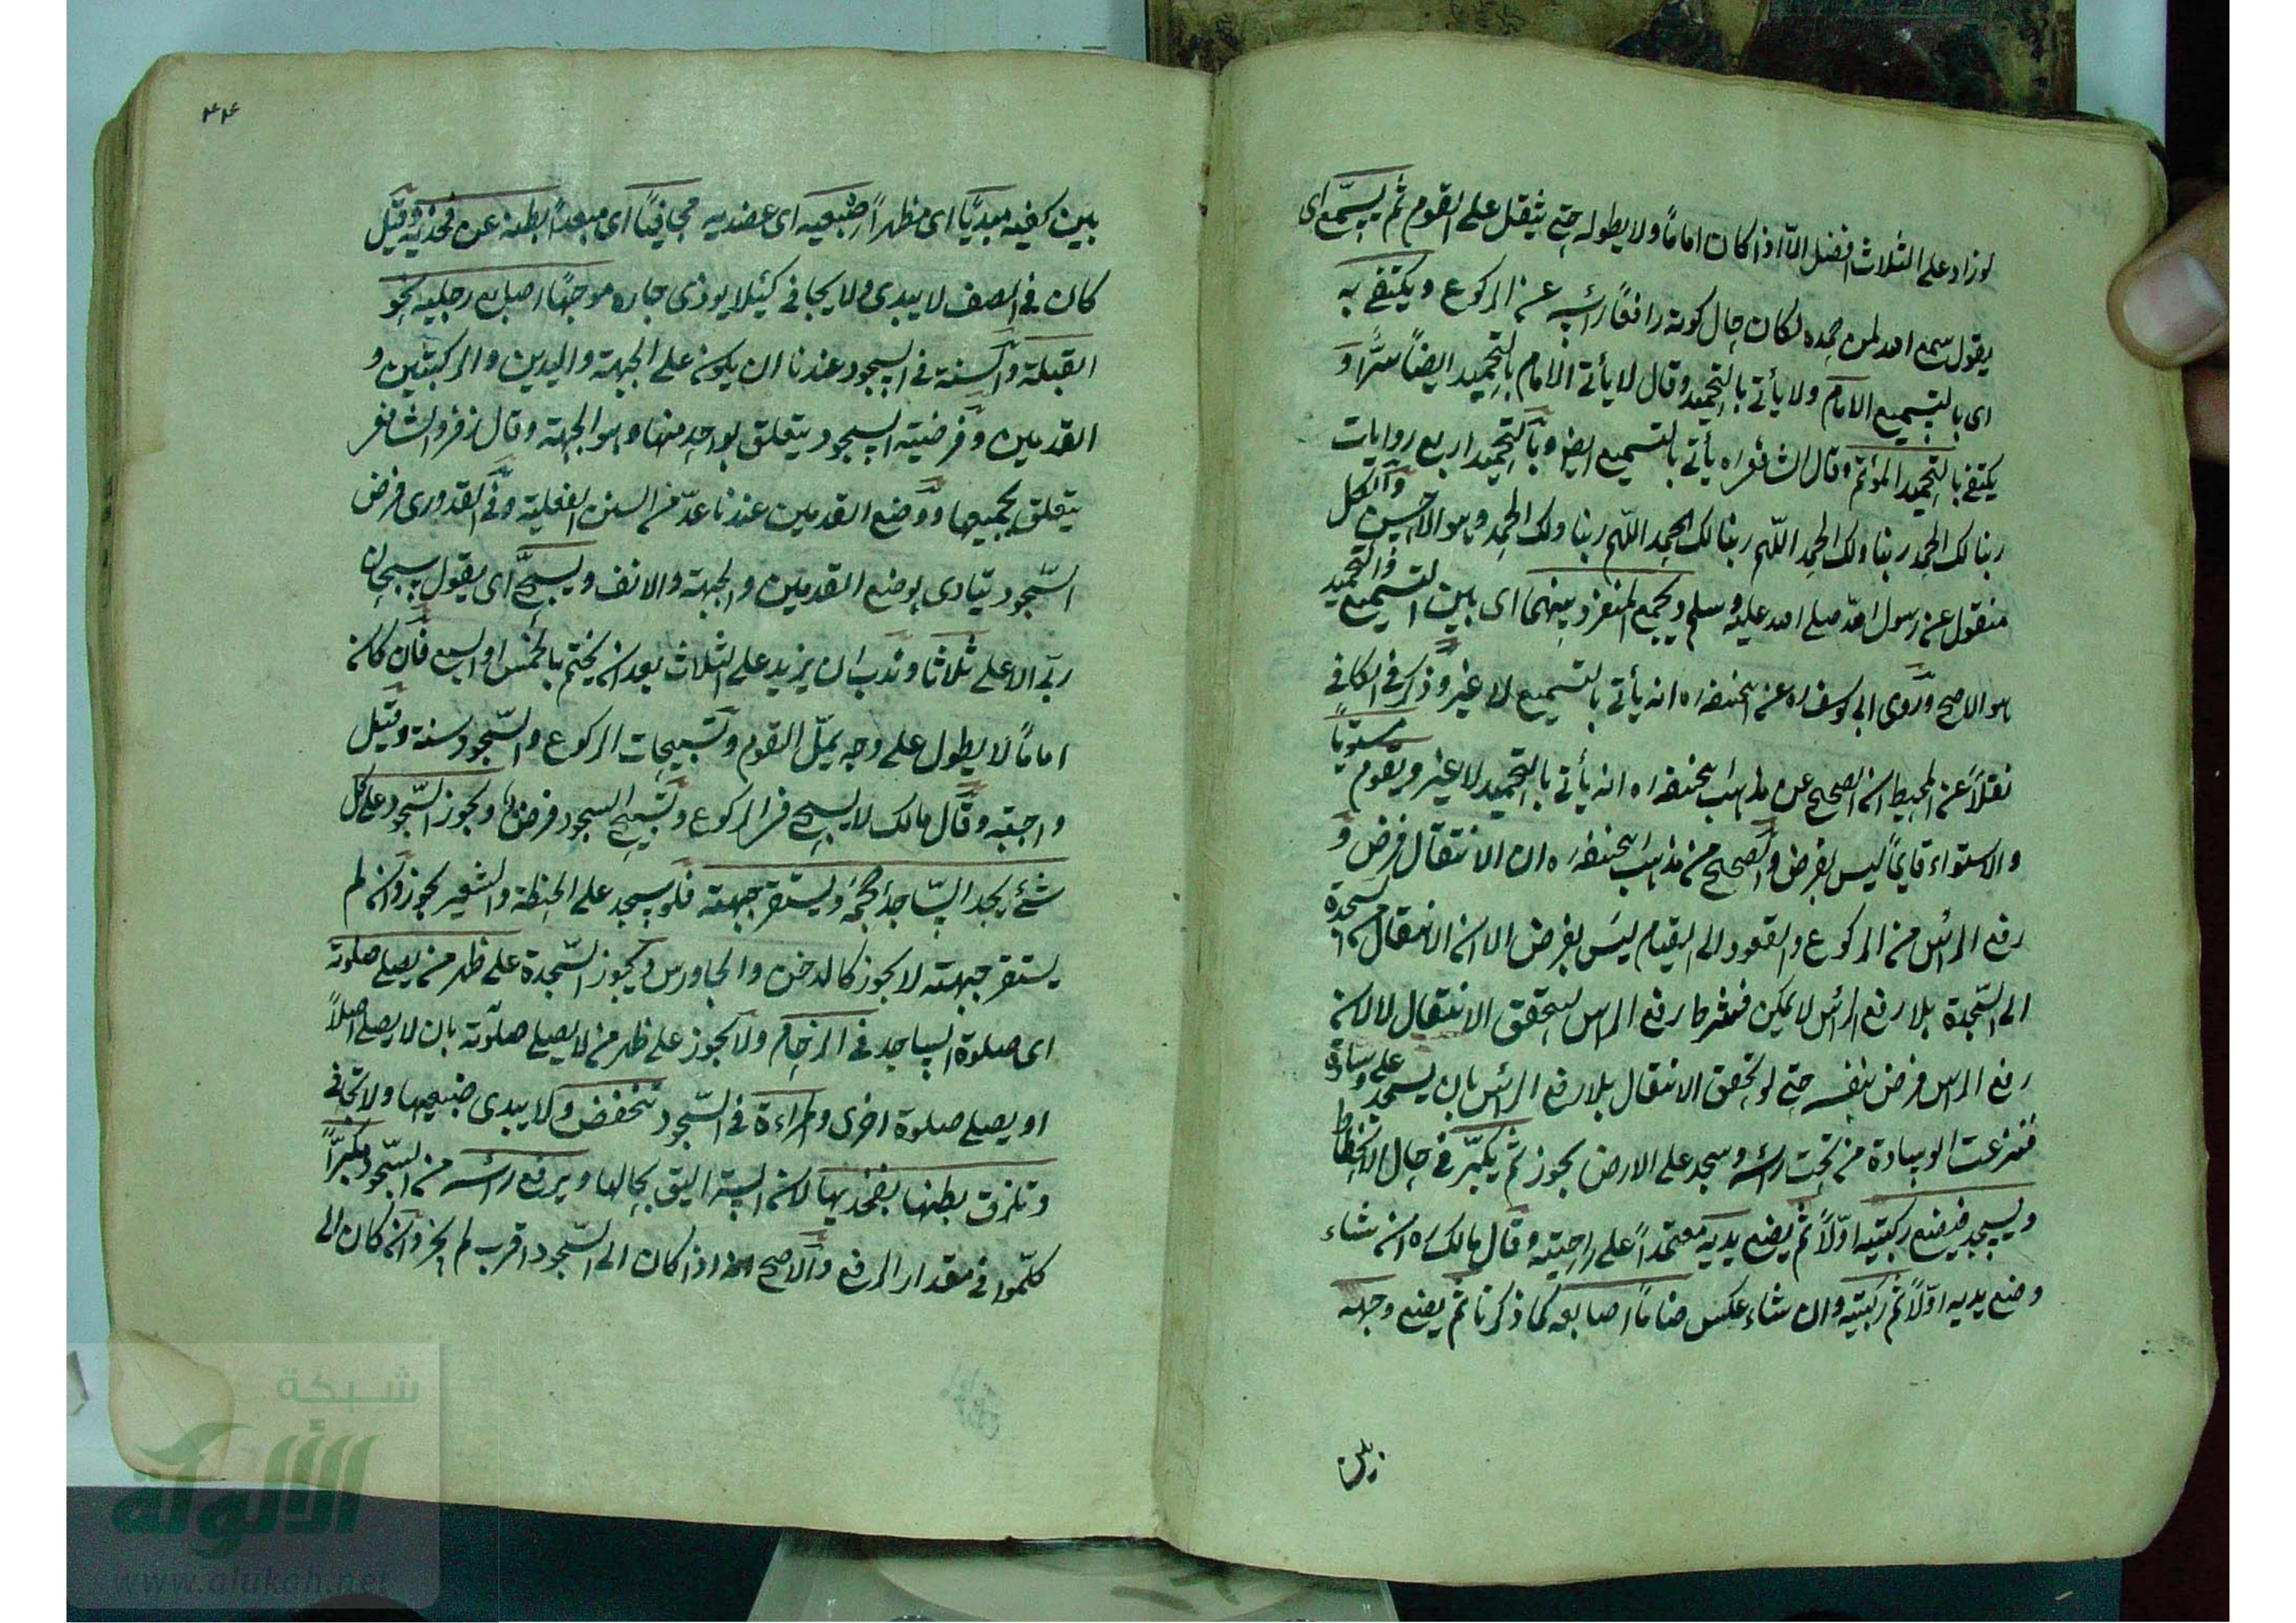 لو زاد على الثلاث افضل الّا اذا كان اماماً ولا يطوله حتى يثقل على القوم ثم يسمّع اى
يقول سمع الله لمن حمده لكان حال كونه رافعاً رأسه عن الركوع ويكتفى به
اى بالتسميع الامام ولا يأتى بالتحميد وقال لا يأتى الامام بالتحميد ايضاً سرّاً و
يكتفى بالتحميد المؤتم وقال الشافعى ره يأتى بالتسميع ايضا وبالتحميد اربع روايات
ربنا لك الحمد ربنا ولك الحمد اللّهم ربنا لك الحمد اللّهم ربنا ولك الحمد وهو الاحسن والكل
منقول عن رسول الله صلى الله عليه وسلم ويجمع المنفرد بينهما اى بين التسميع والتحميد
هو الاصح وروى ابى يوسف ره عن ابيحنيفه ره انه يأتى بالتسميع لا غير وذكر فى الكافى
نقلاً عن المحيط ان الصحيح عن مذهب ابيحنيفه ره انه يأتى بالتحميد لا غير ويقوم مستوياً
والاستواء قايماً ليس بفرض والصحيح من مذهب ابيحنيفه ره ان الانتقال فرض و
رفع الرأس من الركوع والقعود الى القيام ليس بفرض الا ان الانتقال من السجدة
الى السّجدة بلا رفع الرأس لا يمكن فشرط رفع الراس ليتحقق الانتقال لا لان
رفع الراس فرض بنفسه حتى لو تحقق الانتقال بلا رفع الرأس بان يسجد على وسادة
فنزعت الوسادة من تحت رأسه وسجد على الارض يجوز ثم يكبّر فى حال الانحطاط
ويسجد فيضع ركبتيه اوّلاً ثم يضع يديه معتمداً على راحتيه وقال مالك ره ان شاء
وضع يديه اوّلاً ثم ركبتيه وان شاء عكس ضاماً اصابعه كما ذكرنا ثم يضع وجهه
بين
٤٤
بين كفيه مبديّاً اى مظهراً ضبعيه اى عضديه مجافياً اى مبعداً بطنه عن فخذيه وقيل
كان فى الصف لا يبدى ولا يجافى كيلا يوذى جاره موجهاً اصابع رجليه نحو
القبلة والسنة فى السجود عندنا ان يكون على الجبهة واليدين والركبتين و
القدمين وفرضيته السجود يتعلق بواحد منها وهو الجبهة وقال زفر والشافعى
يتعلق بجميعها ووضع القدمين عندنا عدّ من السنن الفعلية وفى القدورى فرض
السّجود يتادى بوضع القدمين والجبهة والانف ويسبّح اى يقول سبحان
ربّى الاعلى ثلاثا وندب ان يزيد على الثلاث بعد ان يختم بالخمس او السبع فان كان
اماماً لا يطول على وجه يملّ القوم وتسبيحات الركوع والسّجود سنة وقيل
واجبة وقال مالك لا يسبح فى الركوع وتسبيح السجود فرض ويجوز السّجود على كل
شئ يجد السّاجد حجمه ويستقر جبهته فلو سجد على الحنطة والشعير يجوز وان لم
يستقر جبهته لا يجوز كالدخن والجاورس ويجوز السّجدة على ظهر من يصلى صلوته
اى صلوة الساجد فى الزحام ولا يجوز على ظهر من لا يصلى صلوته بان لا يصلى اصلاً
او يصلى صلوة اخرى والمراءة فى السّجود تنخفض ولا يبدى ضبعيها ولا تجافى
وتلزق بطنها بفخذيها لان الستر اليق بحالها ويرفع رأسه من السّجود مكبّراً
كلّموا فى مقدار الرفع والاصح انه اذا كان الى السّجود اقرب لم يجز وان كان الى
شبكة
الألوكة
www.alukah.net